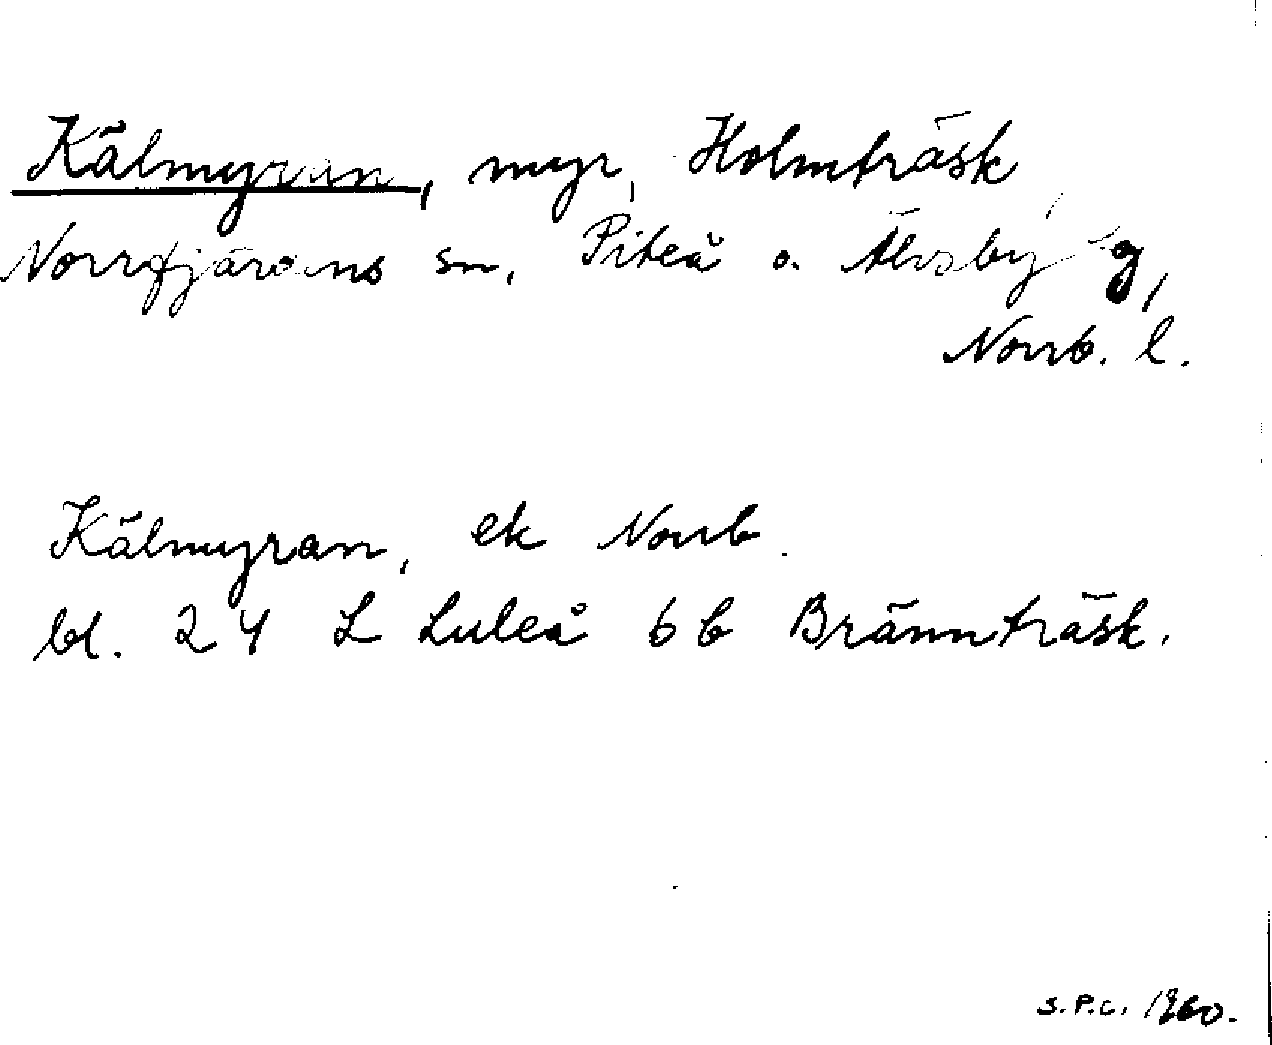 Kälmyran, myr, Holmträsk,
Norrfjärdens sn, Piteå o. Älvsby g,
Norrb. l.
Kälmyran, ek Norrb.
bl. 24 L Luleå 6b Brännträsk.
S.P.C. 1960.